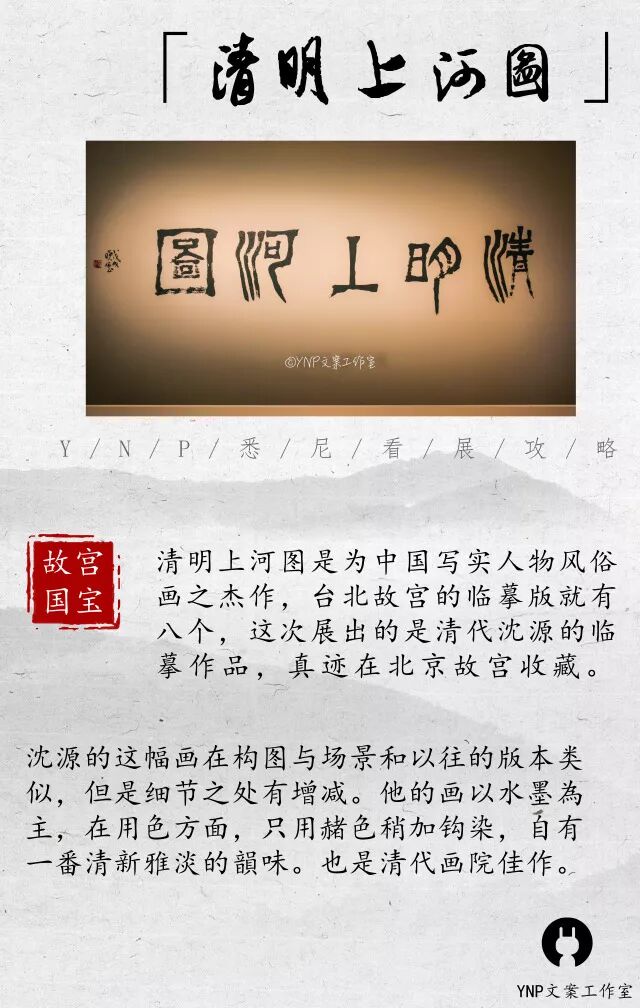 「清明上河圖」
清明上河圖
©YNP文案工作室
Y/N/P/悉/尼/看/展/攻/略
故宫
国宝
清明上河图是为中国写实人物风俗
画之杰作，台北故宫的临摹版就有
八个，这次展出的是清代沈源的临
摹作品，真迹在北京故宫收藏。
沈源的这幅画在构图与场景和以往的版本类
似，但是细节之处有增减。他的画以水墨為
主，在用色方面，只用赭色稍加钩染，自有
一番清新雅淡的韻味。也是清代画院佳作。
YNP文案工作室